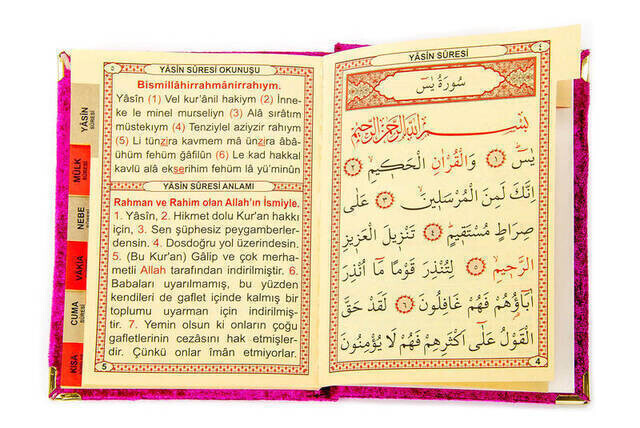 YÂSİN SÛRESİ OKUNUŞU
Bismillâhirrahmânirrahıym.
Yâsîn (1) Vel kur'ânil hakiym (2) İnne-
ke le minel murseliyn (3) Alâ sırâtım
müstekıym (4) Tenziylel aziyzir rahıym
(5) Li tünzira kavmem mâ ünzira âbâ-
ühüm fehüm ğâfilûn (6) Le kad hakkal
kavlü alâ ekserihim fehüm lâ yü'minûn
YÂSİN SÛRESİ ANLAMI
Rahman ve Rahim olan Allah'ın İsmiyle.
1. Yâsîn, 2. Hikmet dolu Kur'an hakkı
için, 3. Sen şüphesiz peygamberler-
densin. 4. Dosdoğru yol üzerindesin.
5. (Bu Kur'an) Gâlip ve çok merha-
metli Allah tarafından indirilmiştir. 6.
Babaları uyarılmamış, bu yüzden
kendileri de gaflet içinde kalmış bir
toplumu uyarman için indirilmiş-
tir. 7. Yemin olsun ki onların çoğu
gafletlerinin cezâsını hak etmişler-
dir. Çünkü onlar îmân etmiyorlar.
5
YÂSİN SÛRESİ
MÜLK SÛRESİ
NEBE SÛRESİ
VAKIA
CUMA SÛRESİ
KISA
YÂSİN SÛRESİ
٤
سُورَةُ يٰسٓ
بِسْمِ اللّٰهِ الرَّحْمٰنِ الرَّحِيمِ
يٰسٓ ﴿١﴾ وَالْقُرْاٰنِ الْحَكِيمِ ﴿٢﴾
اِنَّكَ لَمِنَ الْمُرْسَلِينَ ﴿٣﴾ عَلٰى
صِرَاطٍ مُسْتَقِيمٍ ﴿٤﴾ تَنْزِيلَ الْعَزِيزِ
الرَّحِيمِ ﴿٥﴾ لِتُنْذِرَ قَوْمًا مَٓا اُنْذِرَ
اٰبَٓاؤُ۬هُمْ فَهُمْ غَافِلُونَ ﴿٦﴾ لَقَدْ حَقَّ
الْقَوْلُ عَلٰٓى اَكْثَرِهِمْ فَهُمْ لَا يُؤْمِنُونَ
4